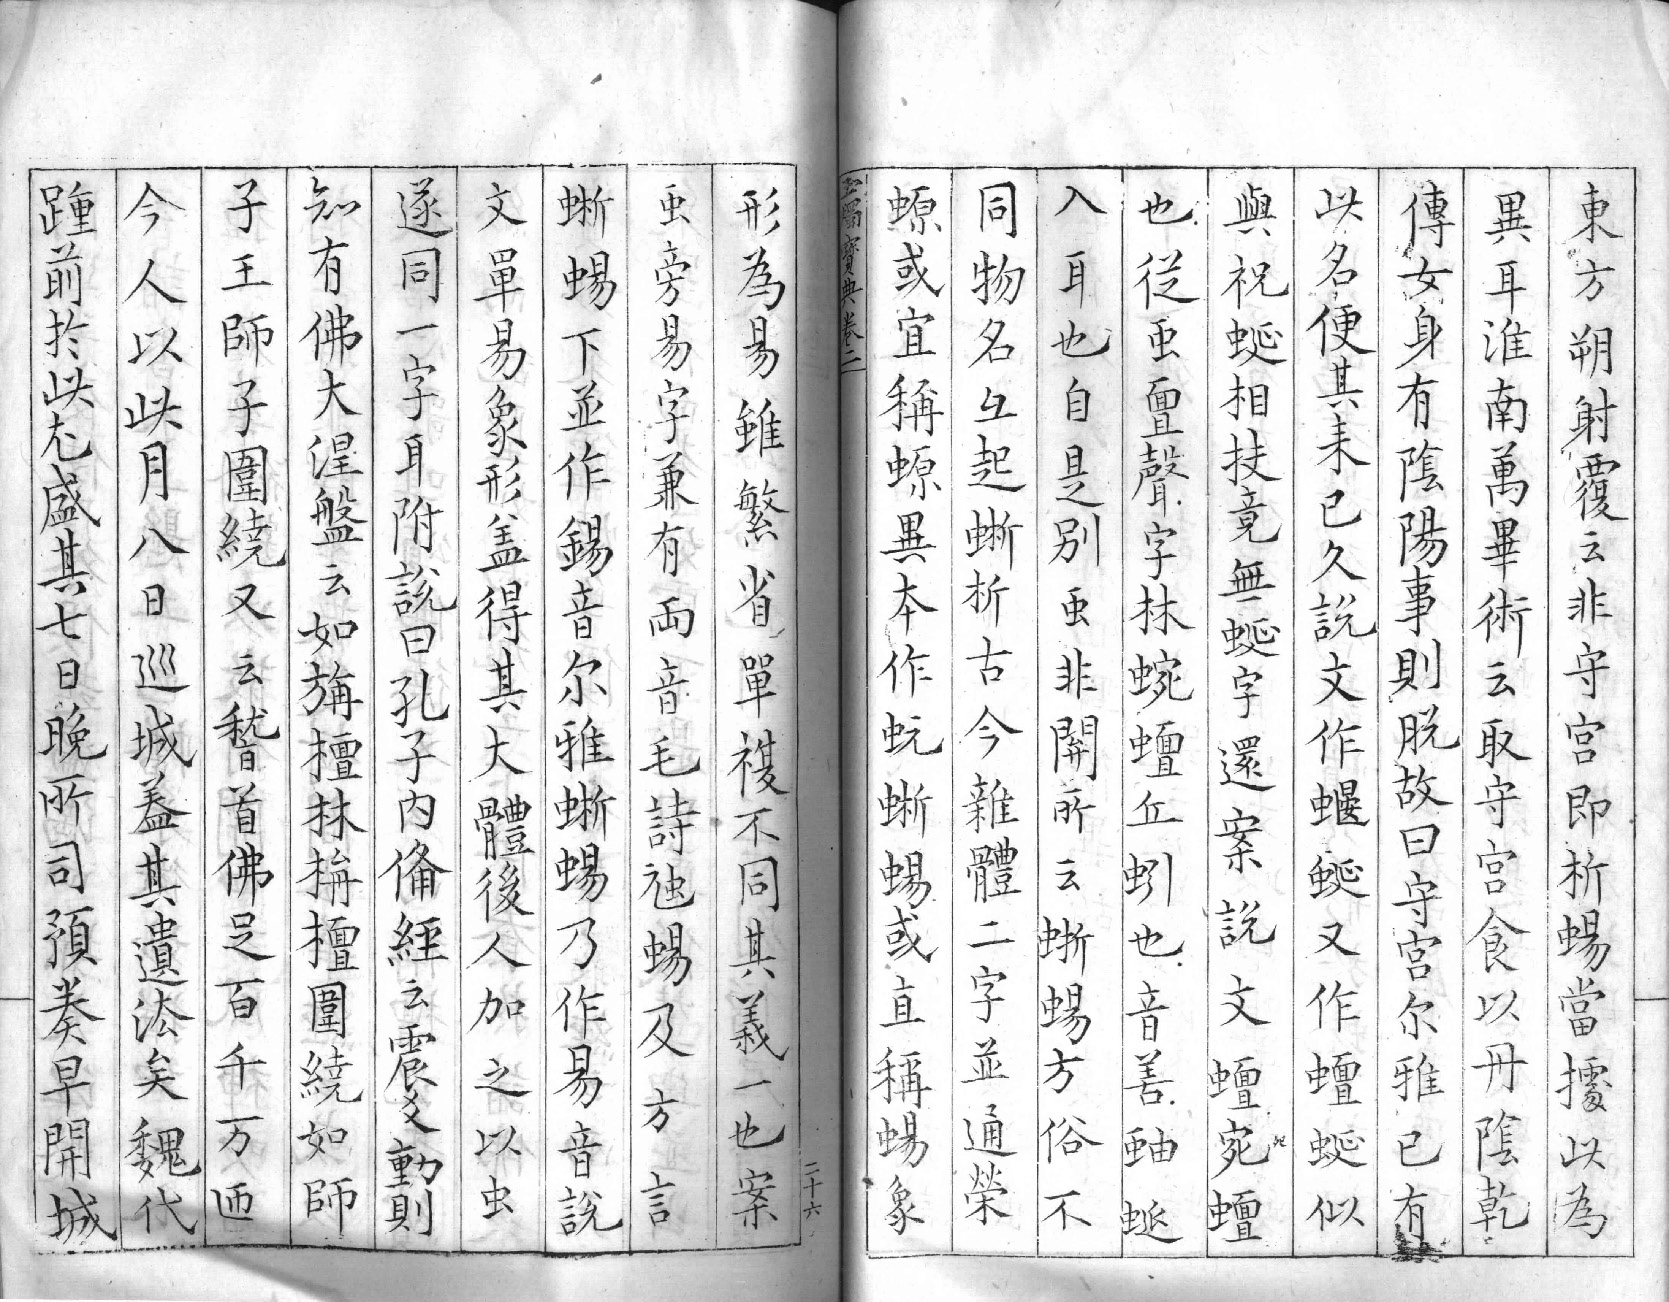 東方朔射覆云非守宮即析蜴當據以為
異耳淮南萬畢術云取守宮食以丹陰乾
傳女身有陰陽事則脱故曰守宮尔雅已有
此名便其来已久說文作蝘蜒又作蟺蜒似
與祝蜒相扶竟無蜒字還案說文蟺宛蟺
也從虫亶聲字林蜿蟺丘蚓也音善蚰蜒
入耳也自是別虫非關所云蜥蜴方俗不
同物名互起蜥析古今雜體二字並通榮
螈或宜稱螈異本作蚖蜥蜴或直稱蜴象
玉燭寶典卷二
二十六
形為易雖繁省單複不同其義一也案
虫旁易字兼有兩音毛詩虺蜴及方言
蜥蜴下並作錫音尔雅蜥蜴乃作易音說
文單易象形盖得其大體後人加之以虫
遂同一字耳附說曰孔子内俻經云震爻動則
知有佛大涅盤云如旃檀林旃檀圍繞如師
子王師子圍繞又云稽首佛足百千万迊
今人以此月八日巡城葢其遺法矣魏代
踵前於此尤盛其七日晚所司預奏早開城